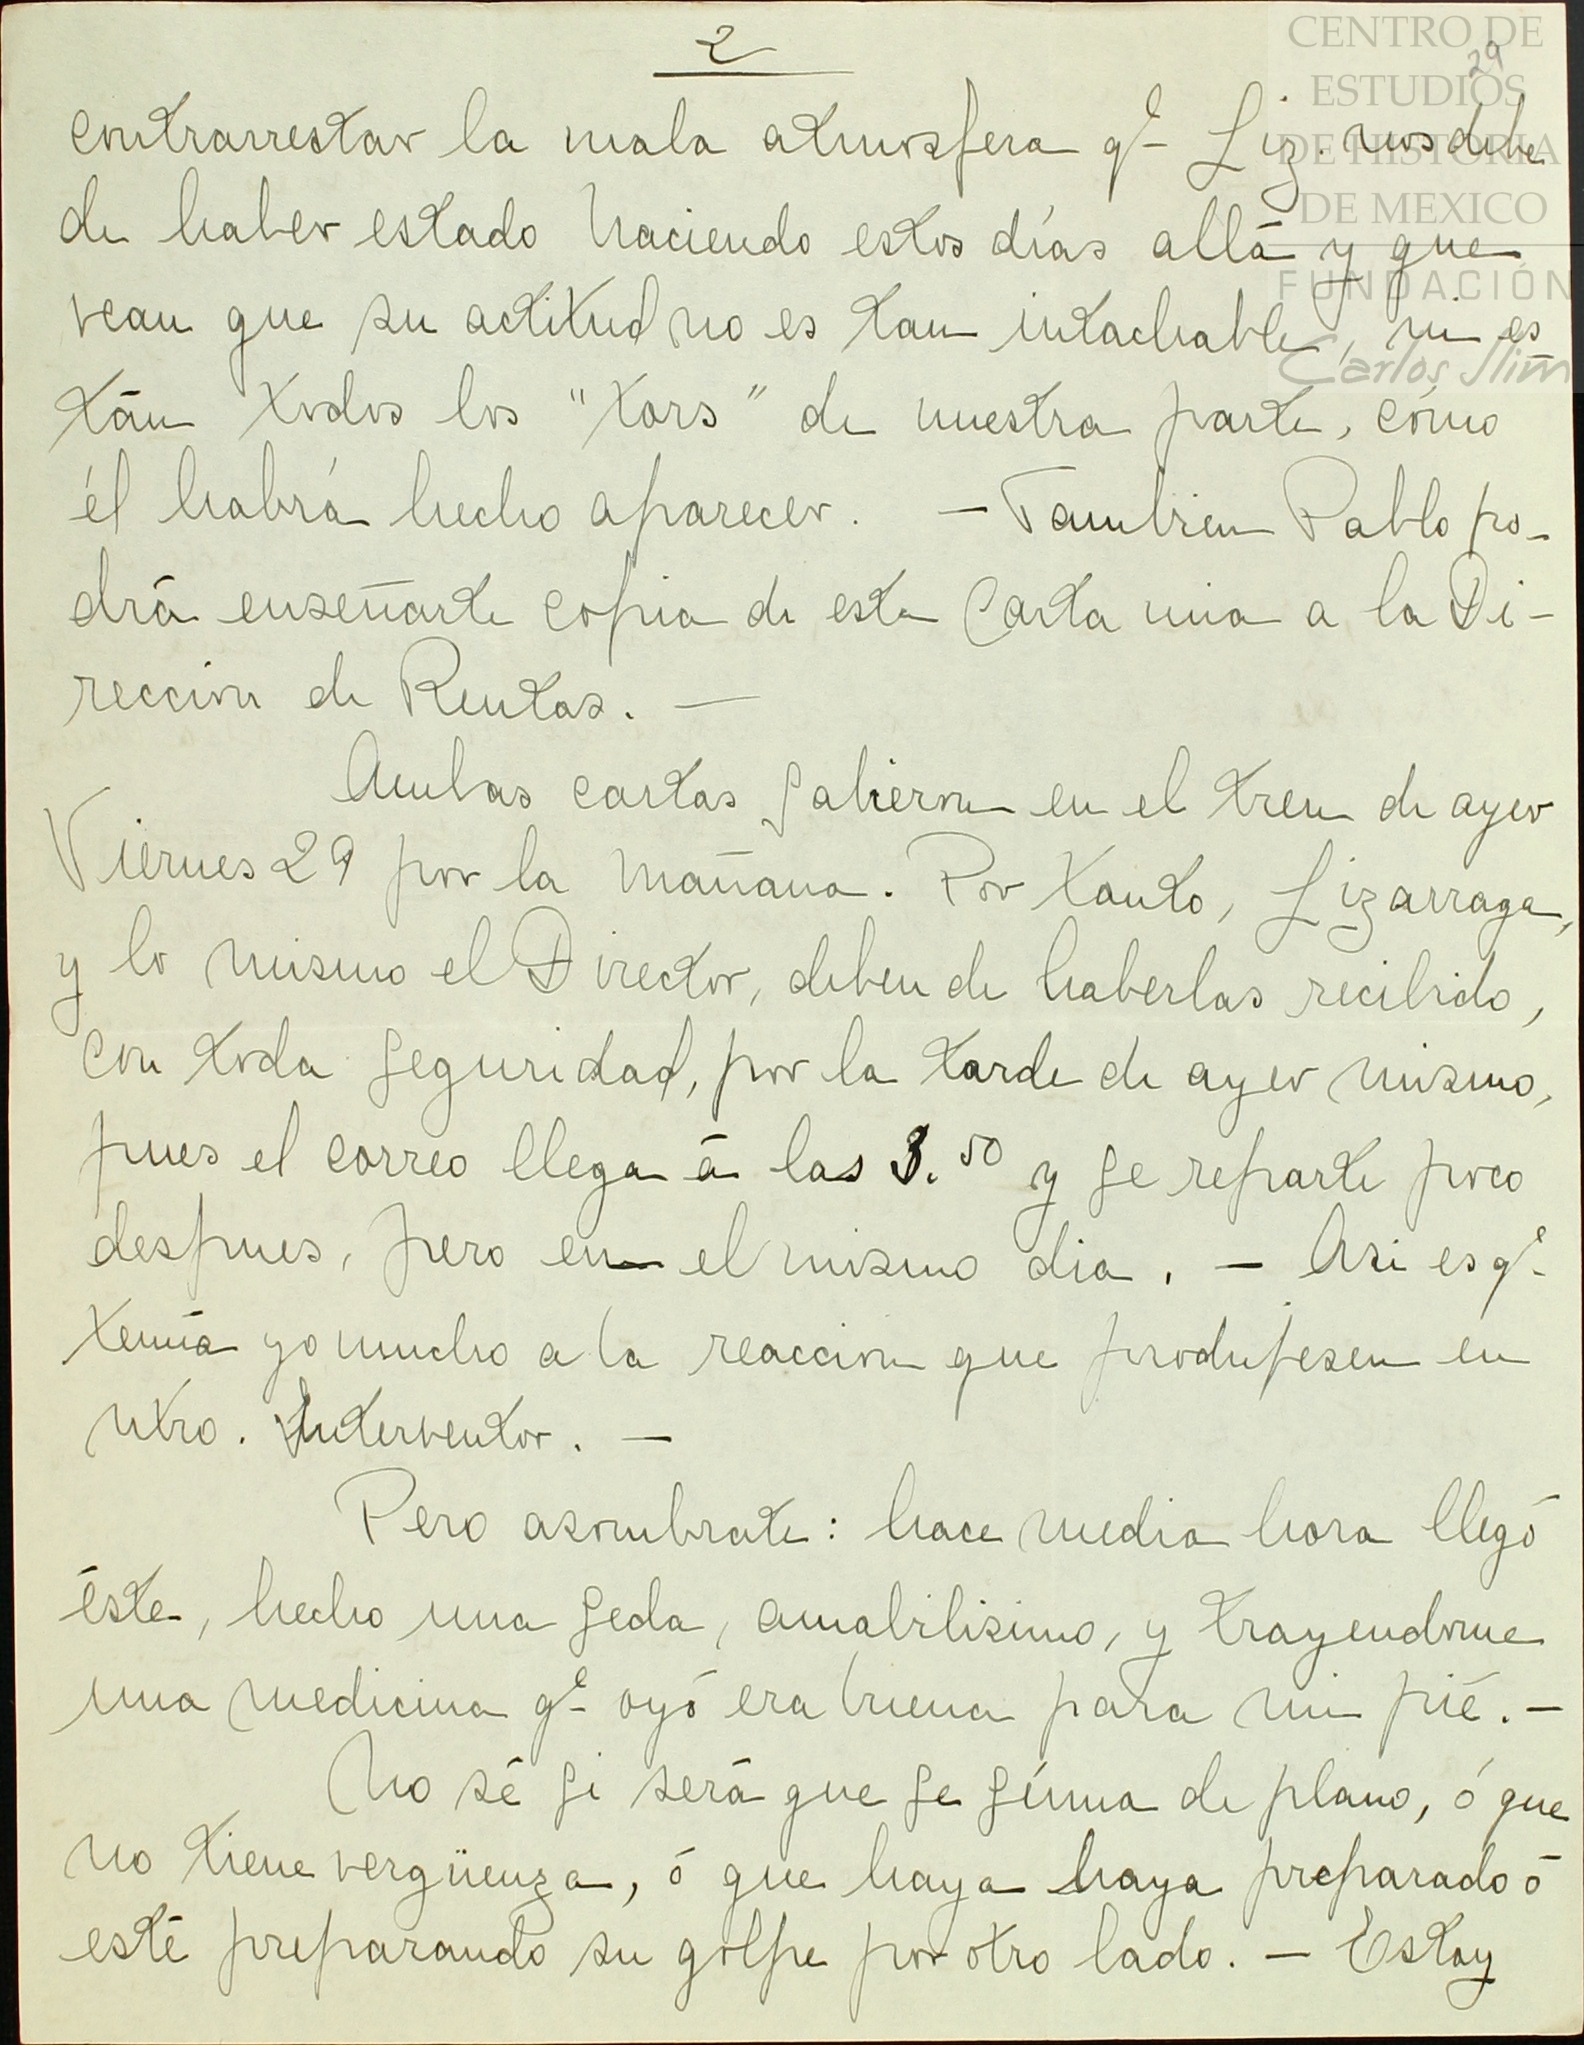 2
29
CENTRO DE
ESTUDIOS
DE HISTORIA
DE MEXICO
FUNDACIÓN
Carlos Slim
contrarrestar la mala atmosfera qe Liz. nos debe
de haber estado haciendo estos días allá y que
vean que su actitud no es tan intachable, ni es
tán todos los "tors" de nuestra parte, cómo
él habrá hecho aparecer. – Tambien Pablo po-
drá enseñarte copia de esta Carta mia a la Di-
reccion de Rentas. –
Ambas cartas salieron en el tren de ayer
Viernes 29 por la mañana. Por tanto, Lizarraga,
y lo mismo el Director, deben de haberlas recibido,
con toda seguridad, por la tarde de ayer mismo,
pues el correo llega á las 3.50 y se reparte poco
despues, pero en el mismo dia. – Asi es qe
temía yo mucho a la reaccion que produjesen en
ntro. Interventor. –
Pero asombrate: hace media hora llegó
éste, hecho una seda, amabilisimo, y trayendome
una medicina qe oyó era buena para mi pié. –
No sé si será que se sínua de plano, ó que
no tiene vergüenza, ó que haya haya preparado ó
esté preparando su golpe por otro lado. – Estoy